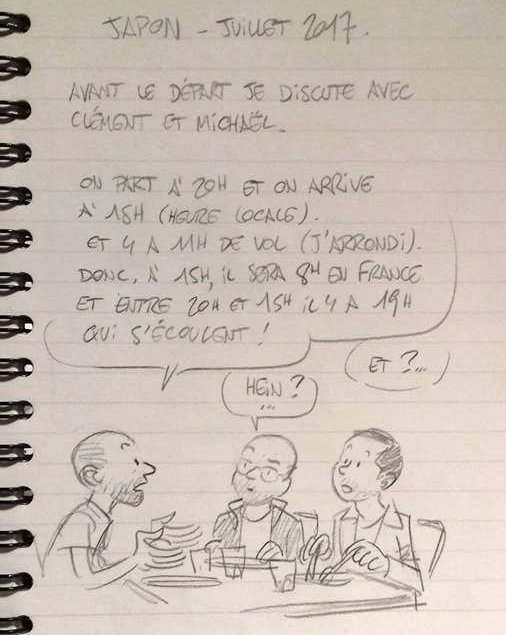 JAPON - JUILLET 2017.
AVANT LE DÉPART JE DISCUTE AVEC
CLÉMENT ET MICHAËL.
ON PART À 20H ET ON ARRIVE
À 15H (HEURE LOCALE).
ET Y A 11H DE VOL (J'ARRONDI).
DONC, À 15H, IL SERA 8H EN FRANCE
ET ENTRE 20H ET 15H IL Y A 19H
QUI S'ÉCOULENT !
ET ?...
HEIN ?
...